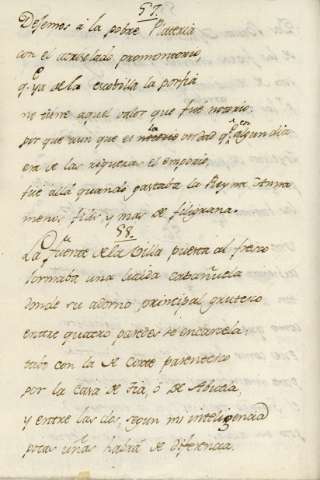 57.
Dejemos á la pobre Plateria
con el acostumbrado promontorio,
q.e ya de la escobilla la porfia
no tiene aquel valor que fué notorio
por que aun que es la verdad q.e en algun dia
era de las riquezas el emporio,
fué allá quando gastaba la Reyna Anna
menos frias y mas de filigrana.
58.
La fuente de la Villa puesta al fresco
formaba una lucida cabañuela
donde su adorno principal grutesco
entre quatro paredes se encarcela
tubo con la de Corte parentesco
por la Casa de Tia, ó de Abuela,
y entre las dos, segun mi inteligencia
pocas uñas habrá de diferencia.